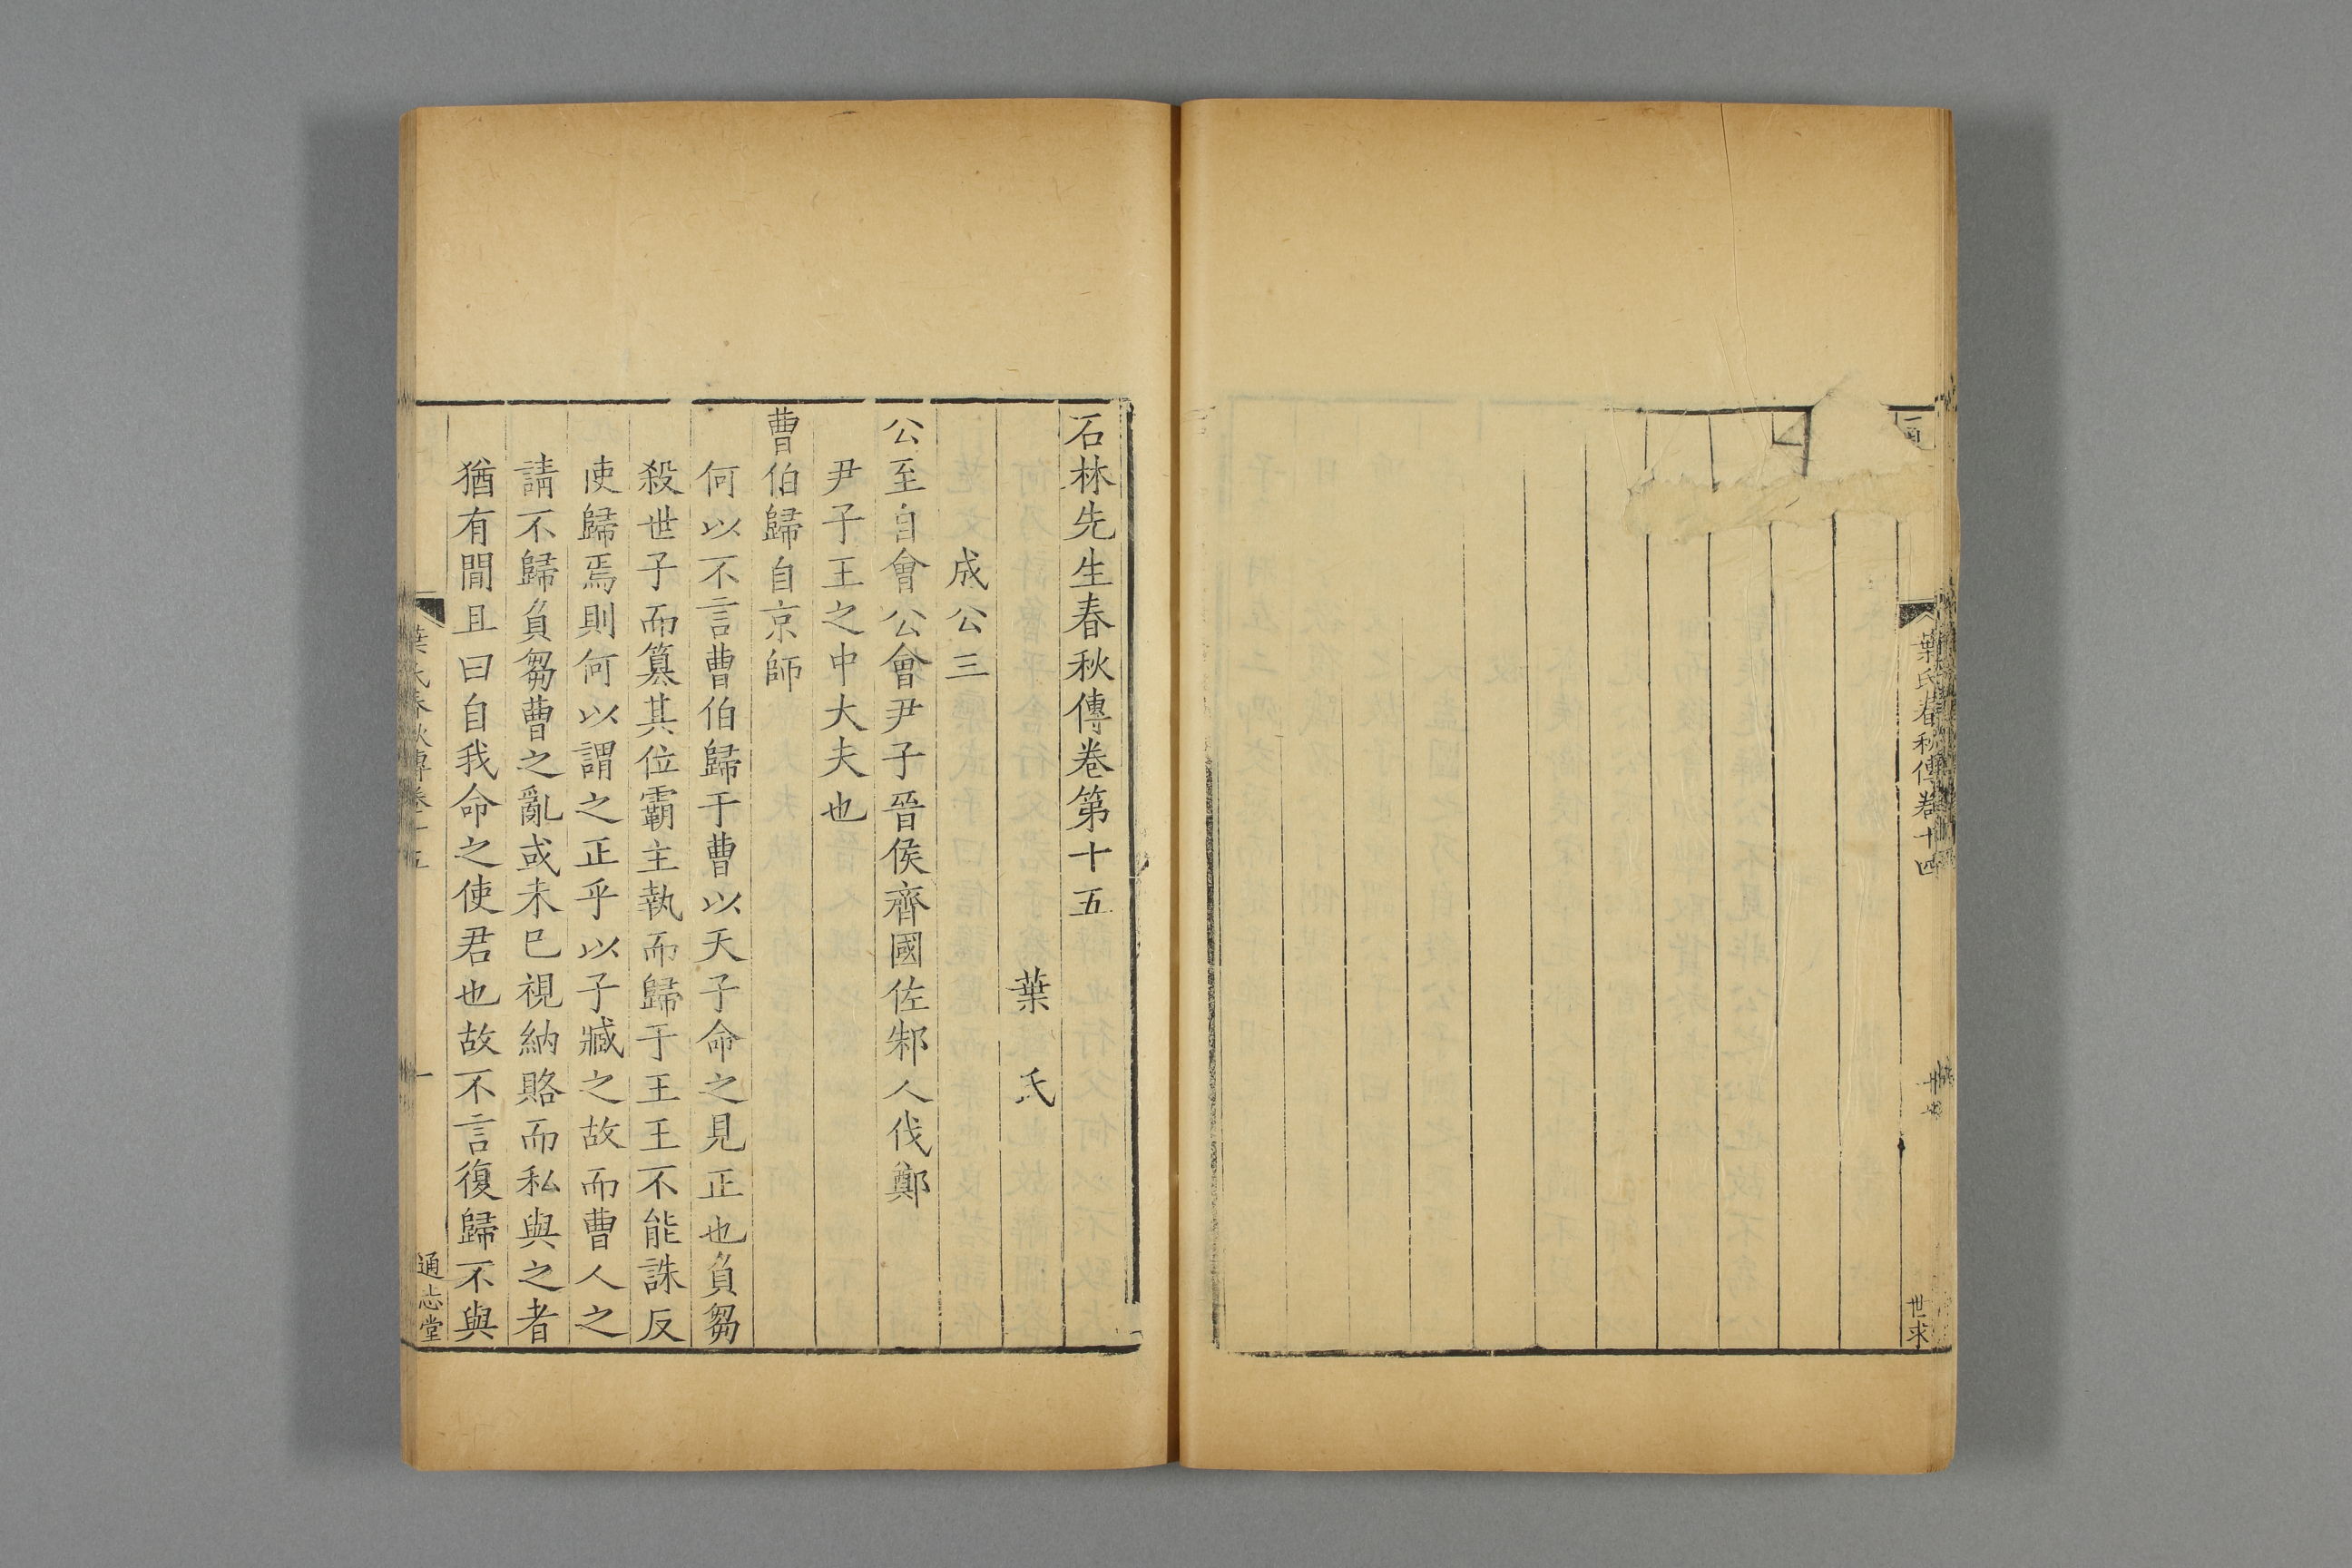 葉氏春秋傳卷十四
世求
石林先生春秋傳卷第十五
葉氏
成公三
公至自會公會尹子晉侯齊國佐邾人伐鄭
尹子王之中大夫也
曹伯歸自京師
何以不言曹伯歸于曹以天子命之見正也負芻
殺世子而篡其位霸主執而歸于王王不能誅反
使歸焉則何以謂之正乎以子臧之故而曹人之
請不歸負芻曹之亂或未巳視納賂而私與之者
猶有閒且曰自我命之使君也故不言復歸不與
葉氏春秋傳卷十五
一
通志堂